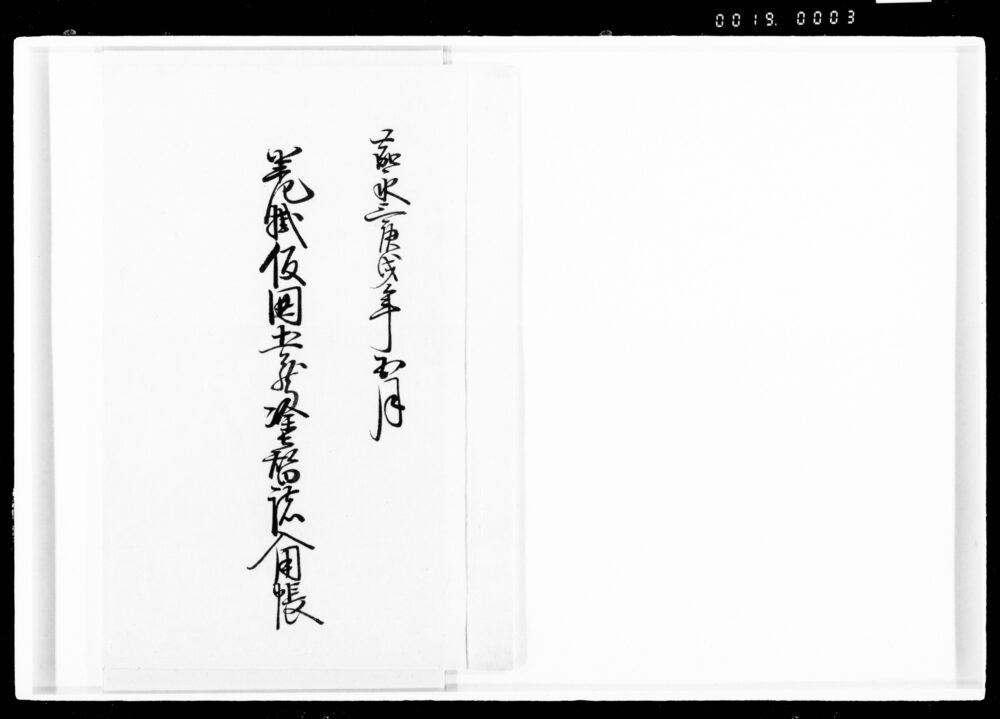 0019. 0003
嘉永三庚戌年五月
仮囲土蔵塗替諸入用帳